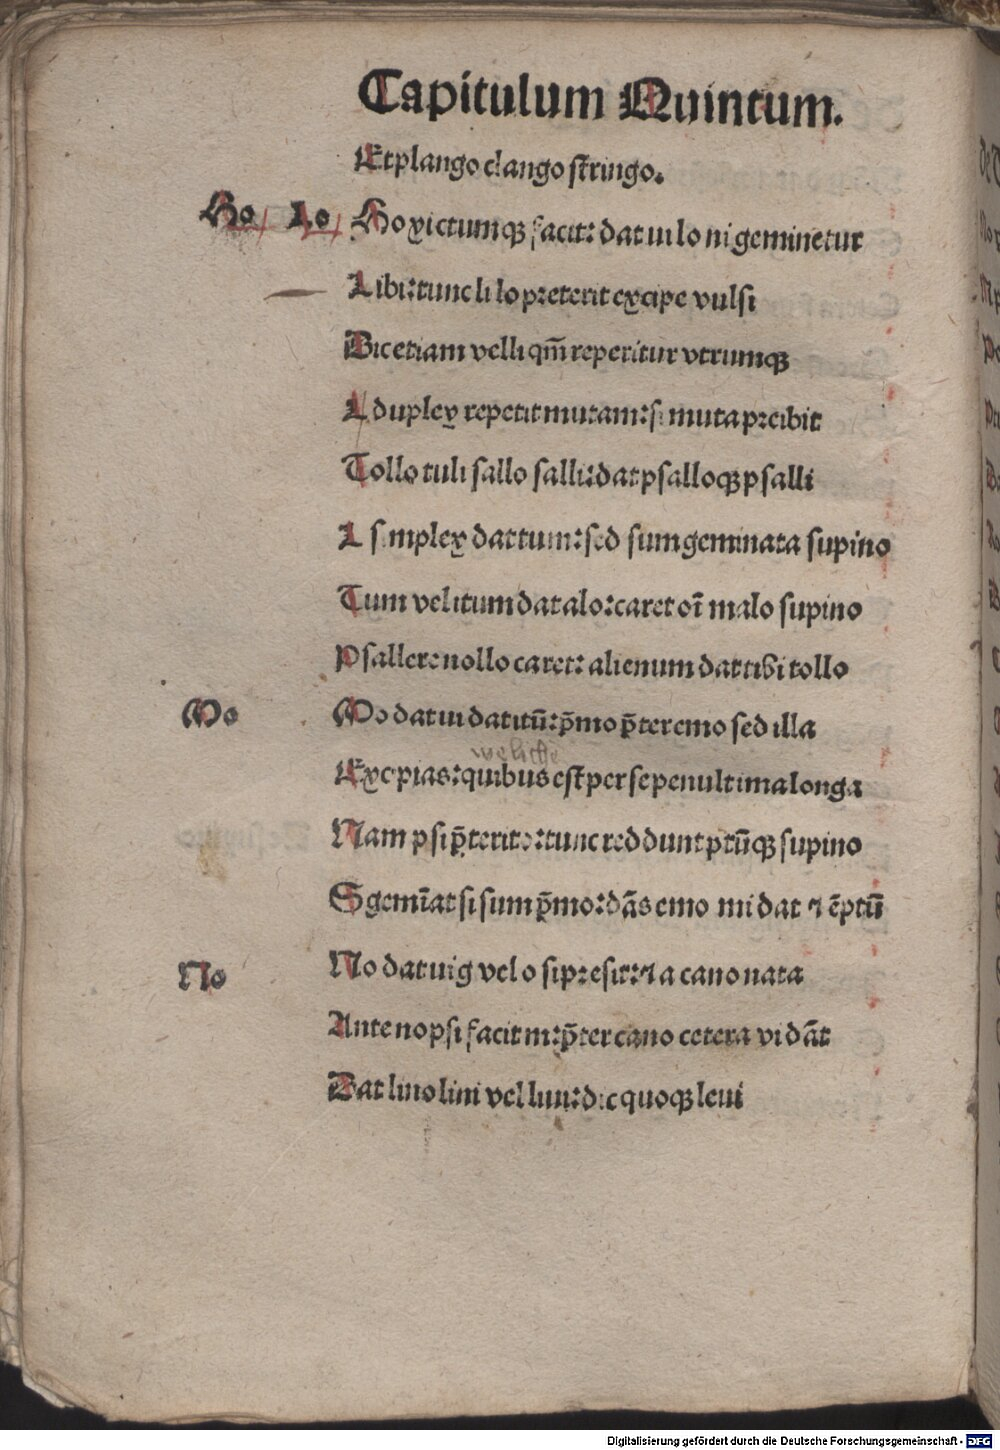 Capitulum Quintum.
Et plango clango stringo.
Ho Lo Ho xictumqꝫ facit: dat ui lo ni geminetur
L ibi: tunc li lo preterit excipe vulsi
Dic etiam velli qm̄ reperitur vtrumqꝫ
L duplex repetit mutam: si muta preibit
Tollo tuli sallo salli: dat psalloqꝫ psalli
L simplex dat tum: sed sum geminata supino
Tum vel itum dat alo: caret oī malo supino
Psallere nollo caret: alienum dat tibi tollo
Mo Mo dat ui dat itū: p̄mo p̄ter emo sed illa
weliche
Excipias: quibus est per se penultima longa
Nam psi p̄terito: tunc reddunt ptūqꝫ supino
S gemīat si sum p̄mo: dās emo mi dat ⁊ ēptū
No No dat ui g vel o si presit: ⁊ a cano nata
Ante no psi facit m: p̄ter cano cetera vi dāt
Dat lino lini vel liui: dic quoqꝫ leui
Digitalisierung gefördert durch die Deutsche Forschungsgemeinschaft - DFG